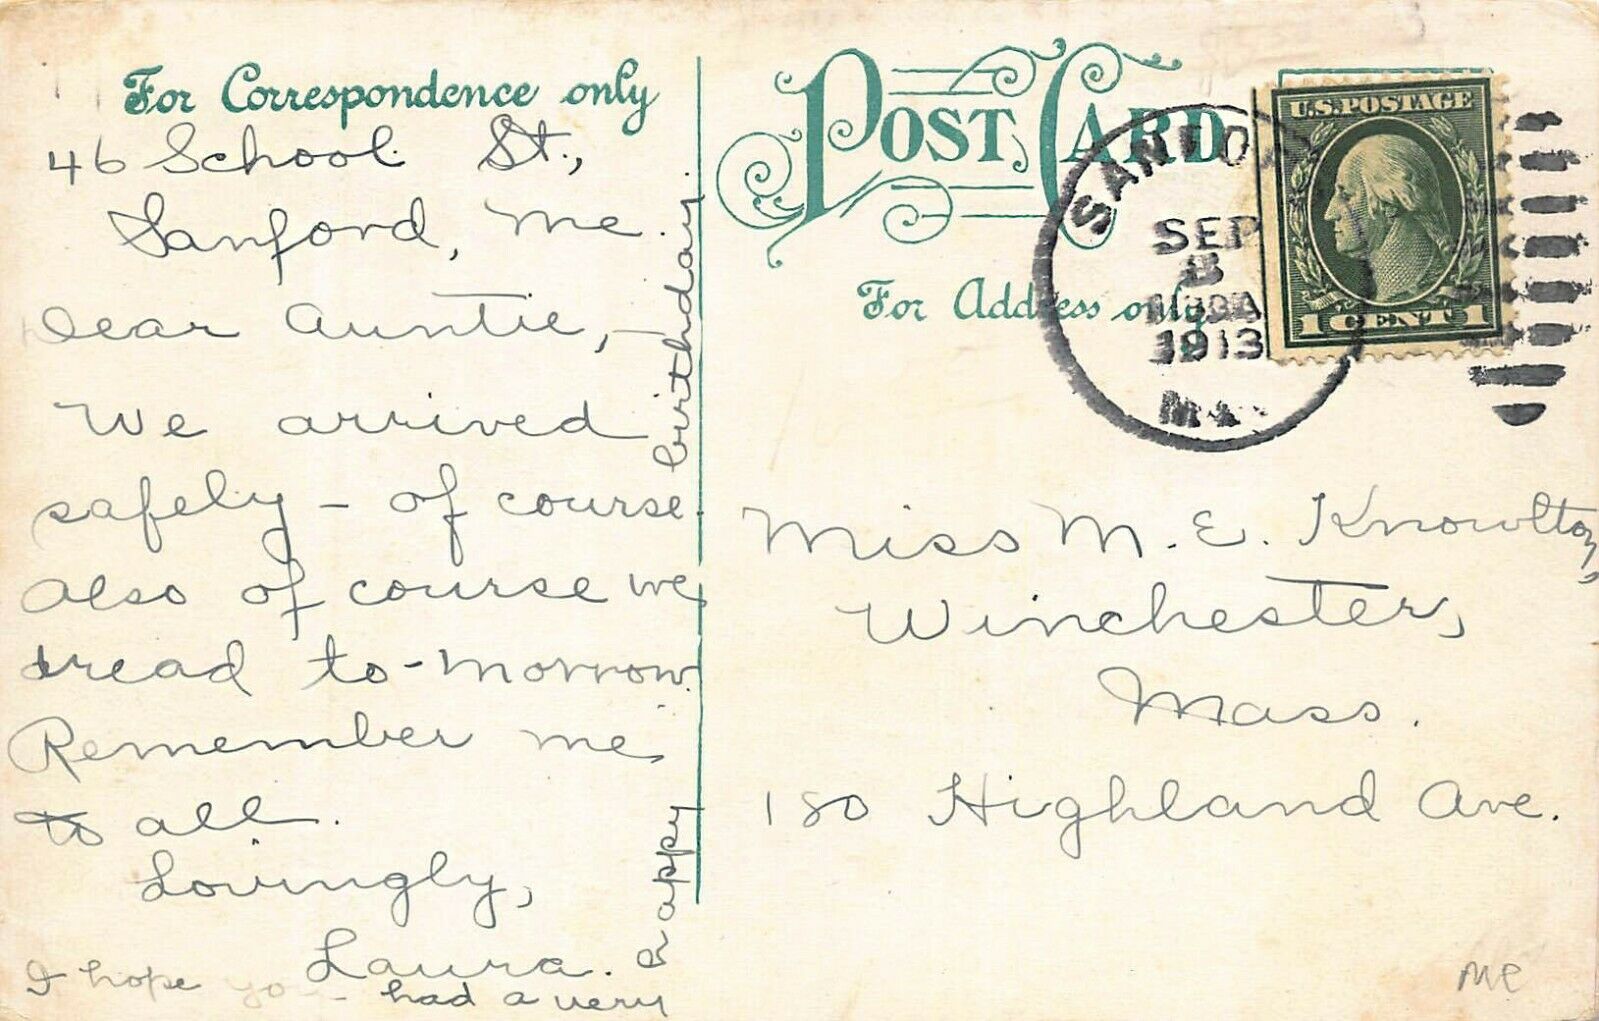 For Correspondence only
46 School St.,
Sanford, Me.
Dear Auntie,-
We arrived
safely - of course.
Also of course we
dread to-morrow.
Remember me
to all.
Lovingly,
Laura.
I hope you had a very
happy
birthday.
POST CARD
For Address only
SANFORD
SEP
8
1913
ME
U.S. POSTAGE
1 CENT 1
Miss M. E. Knowlton,
Winchester,
Mass.
180 Highland Ave.
ME